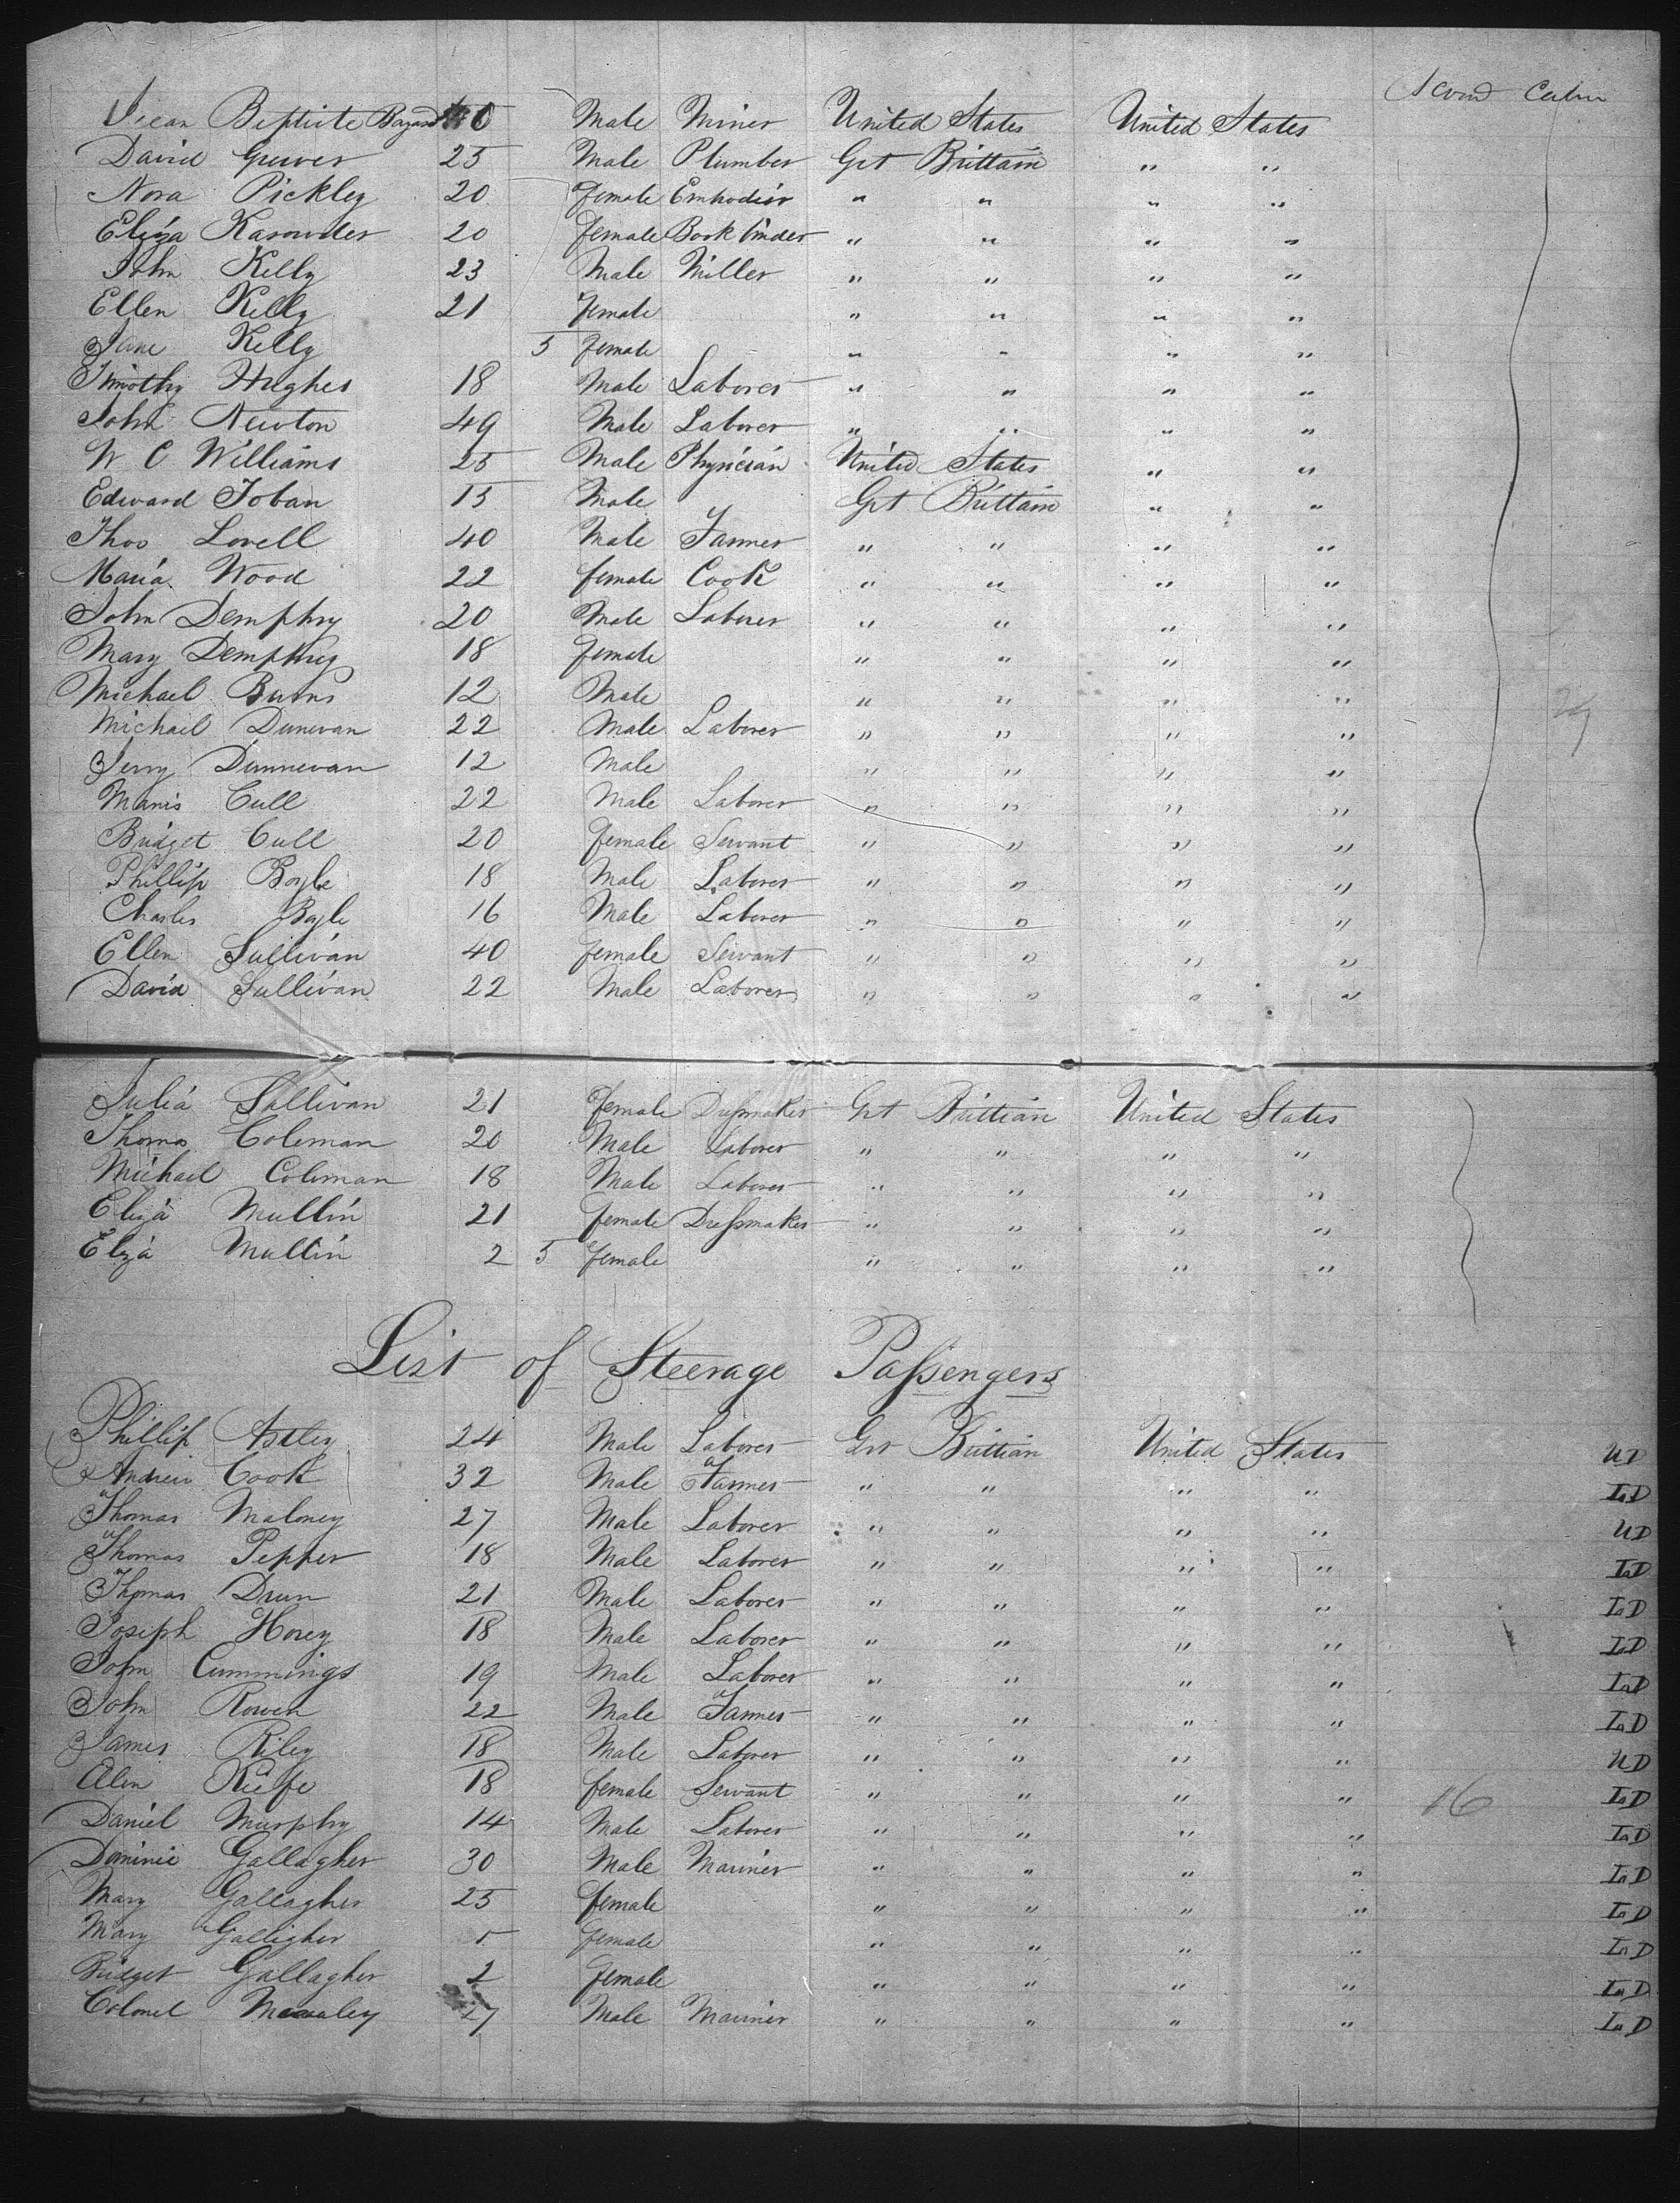 Second Cabin
Jean Beptiste Bayard Male Miner United States United States
David Gruver 25 Male Plumber Grt Brittain " "
Nora Pickley 20 female " " " "
Eliza 20 female Book binder " " " "
John Kelly 23 Male Miller " " " "
Ellen Kelly 21 female " " " "
Jane Kelly 5 female " " " "
Timothy Hughes 18 Male Laborer " " " "
John Newton 49 Male Laborer " " " "
W C Williams 25 Male Physician United States " "
Edward Toban 15 Male Grt Brittain " "
Thos Lovell 40 Male Farmer " " " "
Maria Wood 22 female Cook " " " "
John Demphry 20 Male Laborer " " " "
Mary Demphrey 18 female " " " "
Michael Burns 12 Male " " " "
29
Michael Dunevan 22 Male Laborer " " " "
Jerry Dunnevan 12 Male " " " "
Manis Cull 22 Male Laborer " " " "
Bridget Cull 20 female Servant " " " "
Phillip Boyle 18 Male Laborer " " " "
Charles Boyle 16 Male Laborer " " " "
Ellen Sullivan 40 female Servant " " " "
David Sullivan 22 Male Laborer " " " "
Julia Sullivan 21 female Dressmaker Grt Brittian United States
Thomas Coleman 20 Male Laborer " " " "
Michael Coleman 18 Male Laborer " " " "
Eliza Mullin 21 female Dressmaker " " " "
Eliza Mullin 2 5 female " " " "
List of Steerage Passengers
Phillip Astley 24 Male Laborer Grt Brittian United States UD
Andrew Cook 32 Male Farmer " " " " LD
Thomas Maloney 27 Male Laborer " " " " UD
Thomas Pepper 18 Male Laborer " " " " LD
Thomas Drum 21 Male Laborer " " " " LD
Joseph Horey 18 Male Laborer " " " " LD
John Cummings 19 Male Laborer " " " " LD
John Rowen 22 Male Farmer " " " " LD
James Riley 18 Male Laborer " " " " UD
Elen Kiefe 18 female Servant " " " " 16 LD
Daniel Murphy 14 Male Laborer " " " " LD
Dominic Gallagher 30 Male Mariner " " " " LD
Mary Gallagher 25 female " " " " LD
Mary Galligher female " " " " LD
Bridget Gallagher 2 female " " " " LD
Colonel 27 Male Mariner " " " " LD